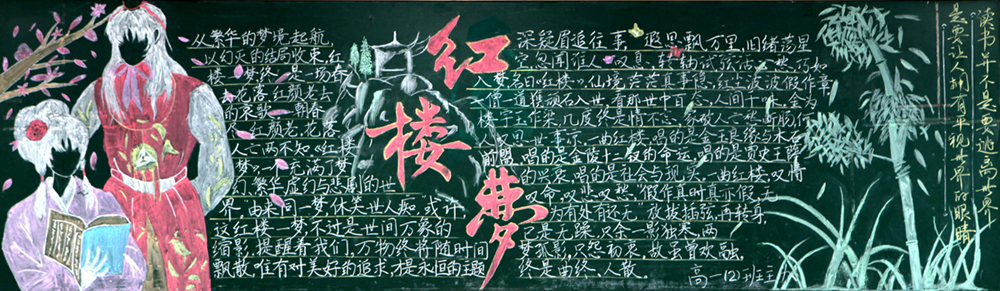 红楼梦
从繁华的梦境起航，
以幻灭的结局收束，红
楼一梦终是一场春
花落红颜老去
的哀歌。一朝春
尽红颜老，花落
人亡两不知《红楼
梦》一书，充满了梦
幻、繁华虚幻与悲剧的世
界，由来同一梦，休笑世人痴，或许
这红楼一梦不过是世间万象的
缩影，提醒着我们，万物终将随时间
飘散，唯有对美好的追求才是永恒的主题
深凝眉追往事，思里飘万里，旧绪荡星
空，忽闻谁人一叹息，
人梦，名曰《红楼》，仙境茫茫真事隐，红尘波波假作章
一僧一道携顽石入世，有那世中百态，人间十味，金为
楼宇玉作梁，几度终是情不忘，家破人亡
世事凉，一曲红楼，唱的是金玉良缘与木石
前盟，唱的是金陵十二钗的命运，唱的是贾史王薛
的兴衰，唱的是社会与现实，一曲红楼，叹将
命，叹悲叹愁，假作真时真亦假，无
为有处有还无，放拨插弦，再转身
已是无踪，只余一影独寒，两
梦孤影，只怨初衷，故虽曾欢融，
终是曲终，人散。
高一(2)班
读书并不是要逃离世界
是要让人拥有平视世界的眼睛